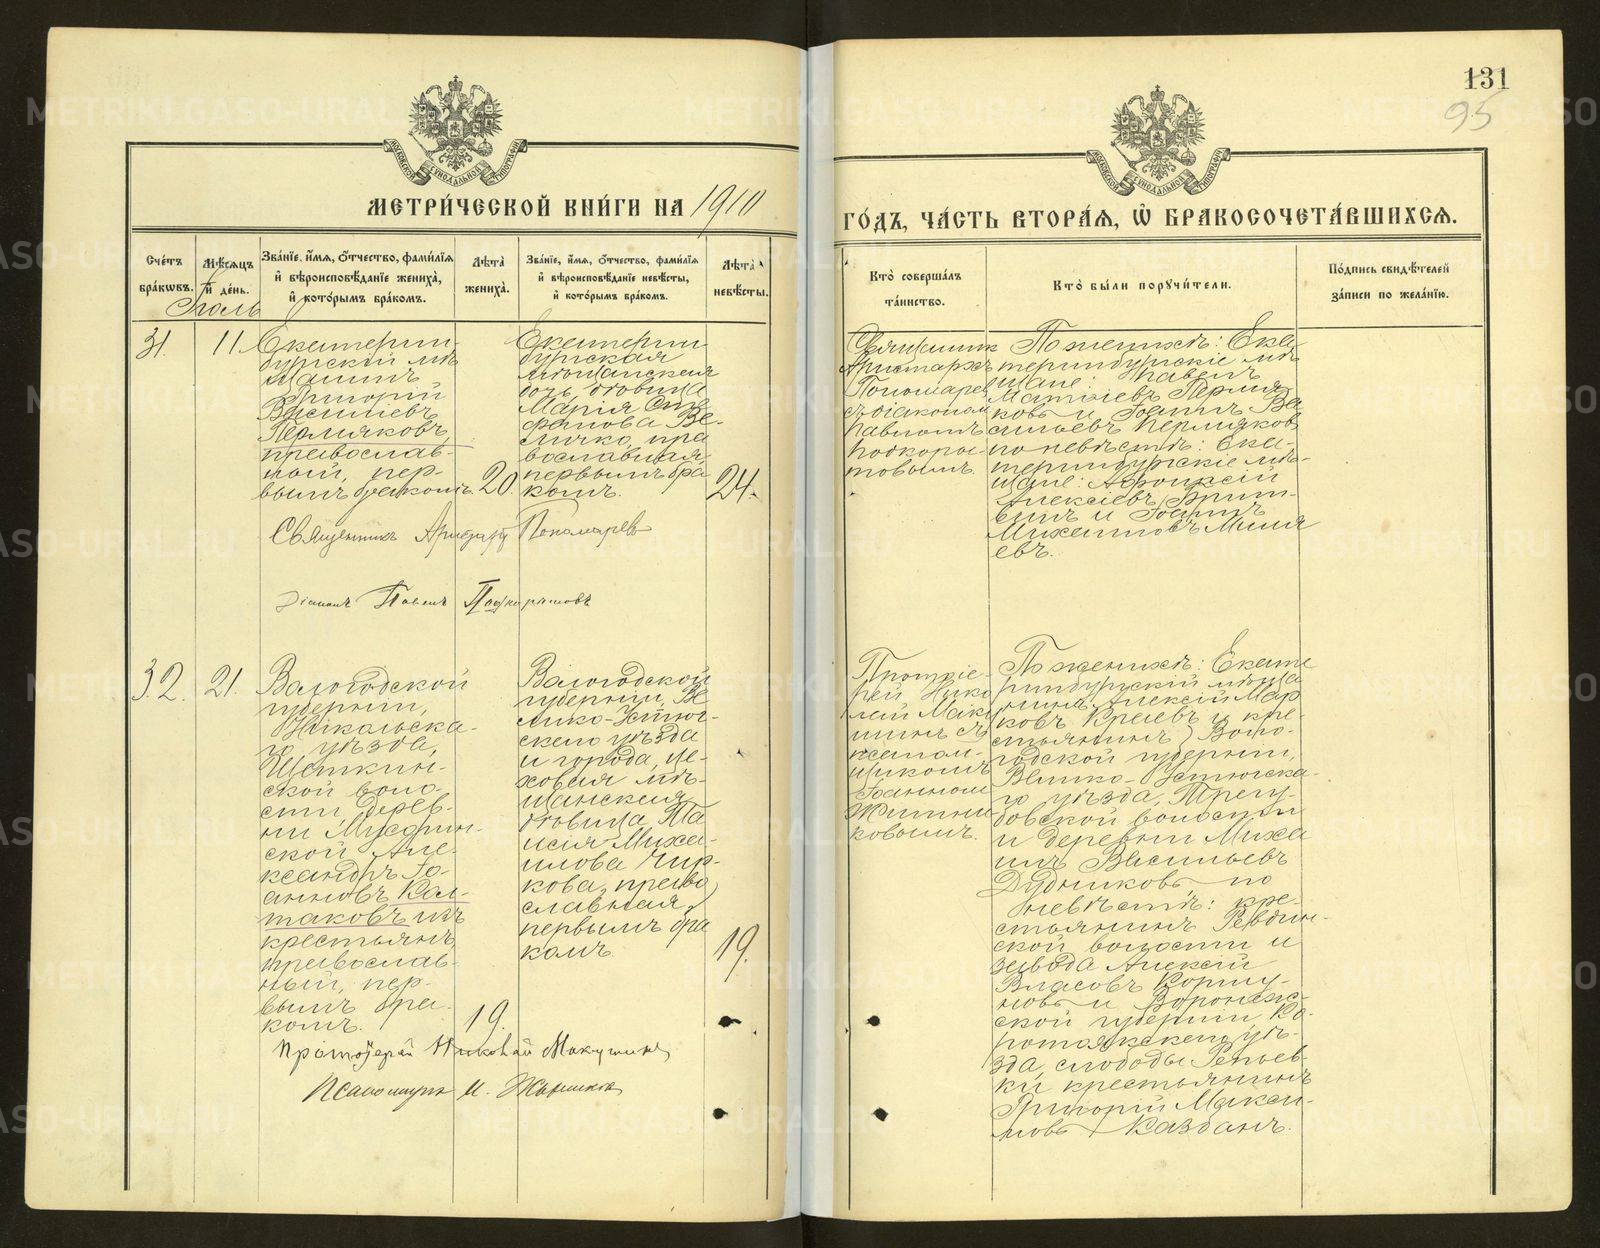 131
95
МЕТРИ́ЧЕСКОЙ КНИ́ГИ НА 1910
ГО́ДЪ, ЧА́СТЬ ВТОРА́Я, Ѿ БРАКОСОЧЕТА́ВШИХСЯ.
Сче́тъ бра́кѡвъ.
Мѣ́сяцъ и҆ де́нь.
Зва́нїе, и҆́мя, ѻ҆́тчество, фами́лїя
и҆ вѣроисповѣ́данїе жениха̀,
и҆ кото́рымъ бра́комъ.
Лѣта̀ жениха̀.
Зва́нїе, и҆́мя, ѻ҆́тчество, фами́лїя
и҆ вѣроисповѣ́данїе невѣ́сты,
и҆ кото́рымъ бра́комъ.
Лѣта̀ невѣ́сты.
Кто̀ соверша́лъ
та́инство.
Кто̀ бы́ли поручи́тели.
По́дпись свидѣ́телей
за́писи по жела́нїю.
Іюль
31.
11.
Екатерин-
бургскій мѣ-
щанинъ
Григорій
Васильевъ
Пермяковъ,
православ-
ный, пер-
вымъ бракомъ.
20.
Екатерин
бургская
мѣщанская
дочь, дѣвица
Марія Сте
фанова Ве-
личко, пра
вославная,
первымъ бра
комъ.
24.
Священник
Аристархъ
Пономарев
с діакономъ
Павломъ
Подкоры-
товымъ.
По женихѣ: Ека
теринбургскіе мѣ-
щане: Павелъ
Матвѣевъ Пермя
ковъ и Іоаннъ Ва
сильевъ Пермяков
по невѣстѣ: Ека-
теринбургскіе мѣ-
щане:
Алексіевъ
и Іоаннъ
Михаиловъ Миня
евъ.
Священникъ Аристархъ Пономаревъ
Діаконъ Павелъ Подкорытовъ
32.
21.
Вологодской
губерніи,
Никольска-
го уѣзда,
Щеткин-
ской воло-
сти, дерев-
ни
ской Але-
ксандръ Іо-
анновъ Кал-
таковъ изъ
крестьянъ,
православ-
ный, пер-
вымъ бра-
комъ.
19.
Вологодской
губерніи, Ве
лико-Устюг-
скаго уѣзда
и города, це-
ховая мѣ-
щанская
дѣвица Та
исія Михаи-
илова Чир-
кова, право
славная,
первымъ бра
комъ.
19.
Протоіе-
рей Нико
лай Маку
шинъ съ
псалом-
щикомъ
Іоанномъ
Житни
ковымъ.
По женихѣ: Екате
ринбургскій мѣща
нинъ Алексій Мар
ковъ и кре-
стьянинъ Воло-
годской губерніи,
Велико-Устюгска-
го уѣзда, Трегу-
бовской волости
и деревни Миха
илъ Васильевъ
Дудниковъ по
невѣстѣ: кре-
стьянинъ Ревдин-
ской волости и
завода Алексій
Власовъ Коршу-
новъ и Воронеж-
ской губерніи Ко-
ротоякскаго уѣ-
зда, слободы Репьев-
ки крестьянинъ
Григорій Макси-
мовъ
Протоіерей Николай Макушинъ
Псаломщик И. Житников